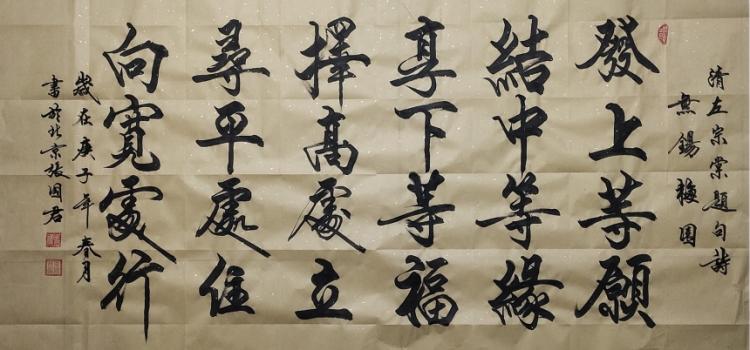 清左宗棠題句詩
無錫梅園
發上等願
結中等緣
享下等福
擇高處立
尋平處住
向寬處行
歲在庚子年春月
書於北京張國君